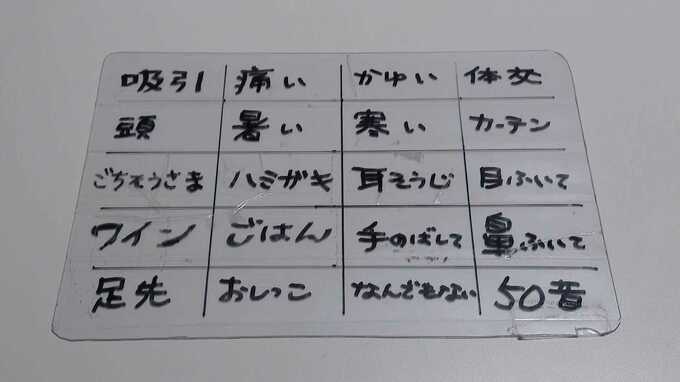 吸引 痛い かゆい 体交
頭 暑い 寒い カーテン
ごちそうさま ハミガキ 耳そうじ 目ふいて
ワイン ごはん 手のばして 鼻ふいて
足先 おしっこ なんでもない 50音